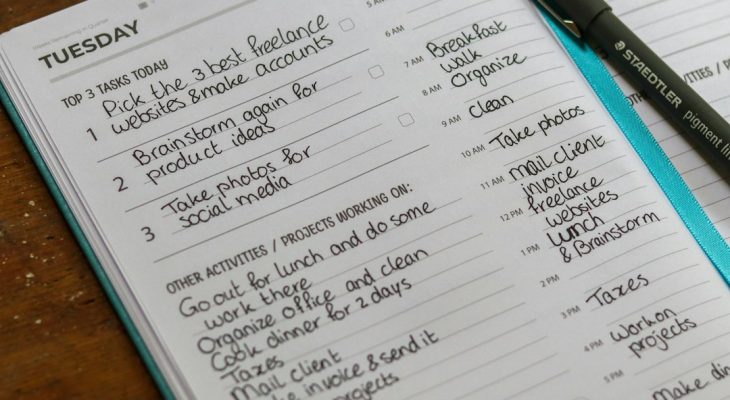 TUESDAY
TOP 3 TASKS TODAY
Pick the 3 best freelance
1 websites & make accounts
Brainstorm again for
2 product ideas
Take photos for
3 social media
OTHER ACTIVITIES / PROJECTS WORKING ON:
Go out for lunch and do some
work there
Organize office and clean
Cook dinner for 2 days
Taxes
Mail client
invoice & send it
projects
5 AM
6 AM
7 AM Breakfast
walk
8 AM Organize
9 AM Clean
10 AM Take photos
11 AM Mail client
invoice
12 PM freelance
websites
1 PM Lunch
& Brainstorm
2 PM
3 PM Taxes
4 PM Work on
projects
5 PM
Make din
STAEDTLER
pigment lin
OTHER ACTIVITIES / PROJ